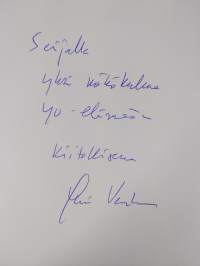 Seijalle
yksi näkökulma
yo-elämään
Kiitollisena